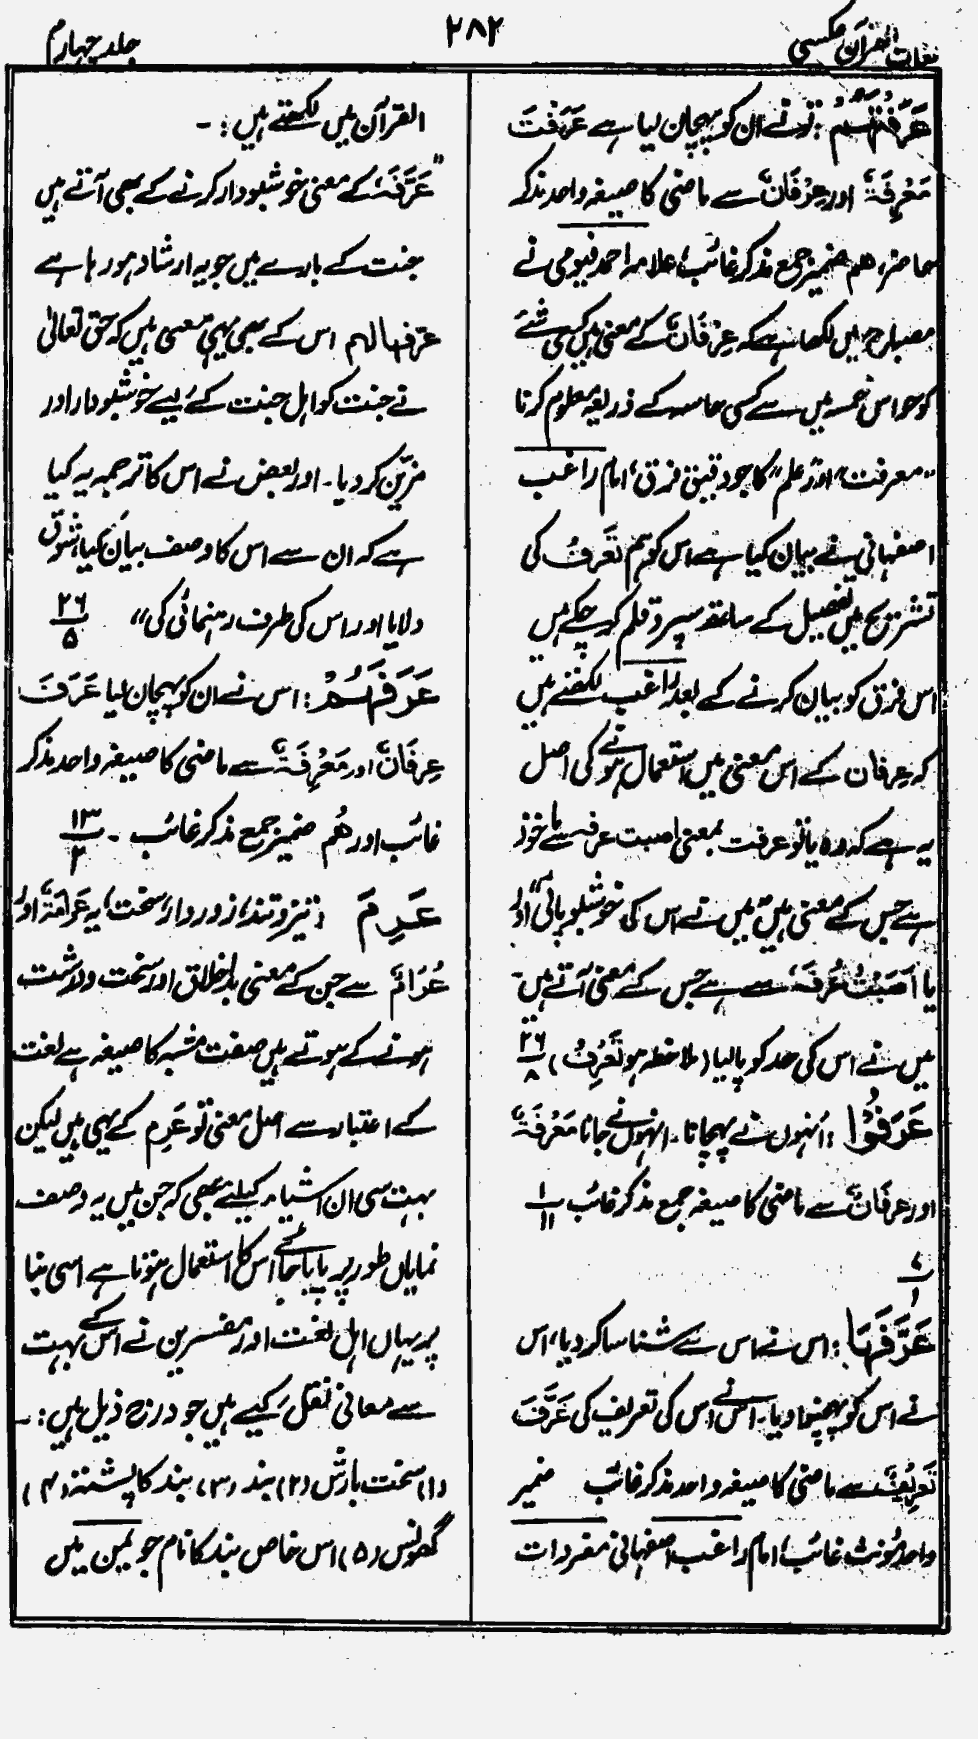 لغات القرآن عکسی
۲۸۲
جلد چہارم
عَرَفْتَهُمْ : تو نے ان کو پہچان لیا ہے عَرَفْتَ
مَعْرِفَۃٌ اور عِرْفَانٌ سے ماضی کا صیغہ واحد مذکر
حاضر، ھم ضمیر جمع مذکر غائب، علامہ احمد فیومی نے
مصباح میں لکھا ہے کہ عِرْفَانٌ کے معنی ہیں کسی شئے
کو حواس خمسہ میں سے کسی حاسہ کے ذریعہ معلوم کرنا
"معرفت" اور "علم" کا جو دقیق فرق، امام راغب
اصفہانی نے بیان کیا ہے اس کو ہم تَعْرِفُ کی
تشریح میں تفصیل کے ساتھ سپرد قلم کر چکے ہیں
اس فرق کو بیان کرنے کے بعد راغب لکھتے ہیں
کہ عرفان کے اس معنی میں استعمال ہونے کی اصل
یہ ہے کہ وہ یا تو عرفت بمعنی اصبت عرفہ سے ماخوذ
ہے جس کے معنی ہیں میں نے اس کی خوشبو پائی" اور
یا اَصَبْتُ عُرْفَهٗ سے ہے جس کے معنی آتے ہیں
میں نے اس کی حد کو پالیا (ملاحظہ ہو تَعْرِفُ) ۲۶/۸
عَرَفُوْا : انہوں نے پہچانا۔ انہوں نے جانا مَعْرِفَۃٌ
اور عِرفَانٌ سے ماضی کا صیغہ جمع مذکر غائب ۱/۱۱
۷/۱
عَرَّفَهَا : اس نے اس سے شناسا کر دیا، اس
نے اس کو پہچنوا دیا۔ اس نے اس کی تعریف کی عَرَّفَ
تَعْرِیْفٌ سے ماضی کا صیغہ واحد مذکر غائب ضمیر
واحد مؤنث غائب، امام راغب اصفہانی مفردات
القرآن میں لکھتے ہیں :۔
"عَرَّفَهٗ کے معنی خوشبودار کرنے کے بھی آتے ہیں
جنت کے بارے میں جو یہ ارشاد ہو رہا ہے
عرفہا لہم اس کے بھی یہی معنی ہیں کہ حق تعالٰی
نے جنت کو اہل جنت کے لیے خوشبودار اور
مزیّن کر دیا۔ اور بعض نے اس کا ترجمہ یہ کیا
ہے کہ ان سے اس کا وصف بیان کیا، شوق
دلایا اور اس کی طرف رہنمائی کی" ۲۶/۵
عَرَفَهُمْ : اس نے ان کو پہچان لیا عَرَفَ
عِرفَانٌ اور مَعْرِفَۃٌ سے ماضی کا صیغہ واحد مذکر
غائب اور ھُم ضمیر جمع مذکر غائب ۔ ۱۳/۲
عَرِم : تیز و تند، زور دار، سخت، یہ عَرَامَۃٌ اور
عُرَامٌ سے جن کے معنی بد اخلاق اور سخت و درشت
ہونے کے ہوتے ہیں صفت مشبہ کا صیغہ ہے لغت
کے اعتبار سے اصل معنی تو عَرِم کے یہی ہیں لیکن
بہت سی ان اشیاء کیلئے بھی کہ جن میں یہ وصف
نمایاں طور پر پایا جائے اس کا استعمال ہوتا ہے اسی بنا
پر یہاں اہل لغت اور مفسرین نے اس کے بہت
سے معانی نقل کیے ہیں جو درج ذیل ہیں :۔
(۱) سخت بارش (۲) بند (۳) بند کا پشتہ (۴)
گھونس (۵) اس خاص بند کا نام جو یمن میں